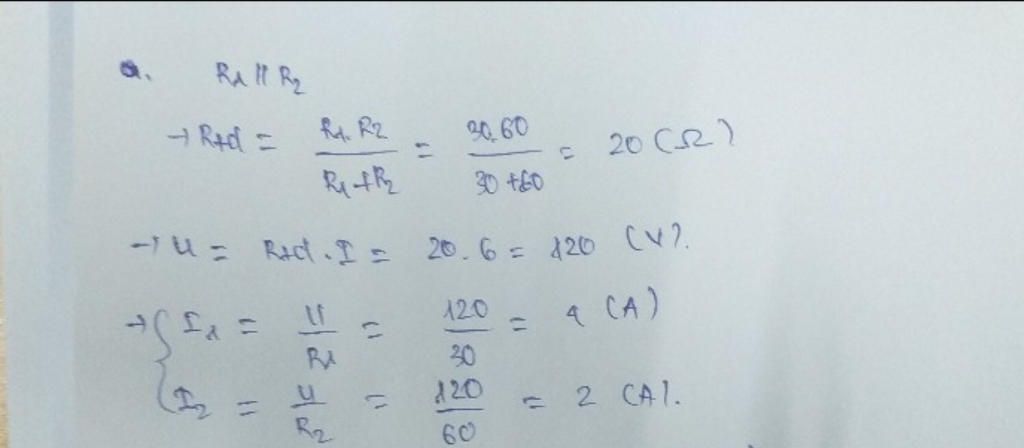 a. R1 // R2
→ Rtđ = R1.R2 / R1+R2 = 30.60 / 30+60 = 20 (Ω)
→ U = Rtđ . I = 20.6 = 120 (V).
→ { I1 = U / R1 = 120 / 30 = 4 (A)
I2 = U / R2 = 120 / 60 = 2 (A).